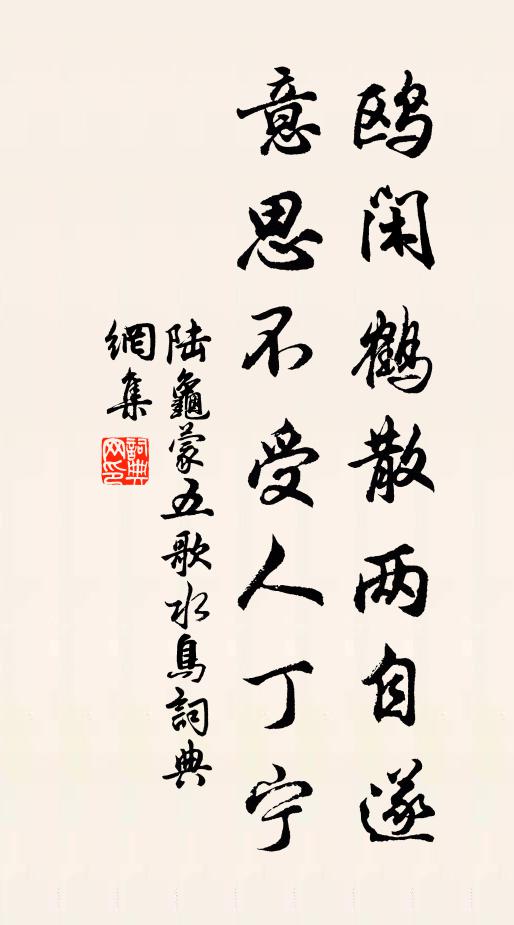 鸥闲鹤散两自遂
意思不受人丁宁
陆龜蒙五歌水鳥詞典
網集
詞典
网印